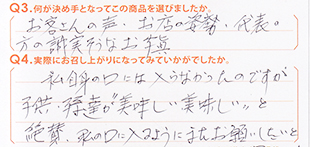 Q3.何が決め手となってこの商品を選びましたか。
お客さんの声・お店の姿勢・代表の
方の誠実そうなお写真
Q4.実際にお召し上がりになってみていかがでしたか。
私自身の口には入らなかったのですが
子供・孫達が“美味しい美味しい”と
絶賛、私の口に入るように またお願いしたいと